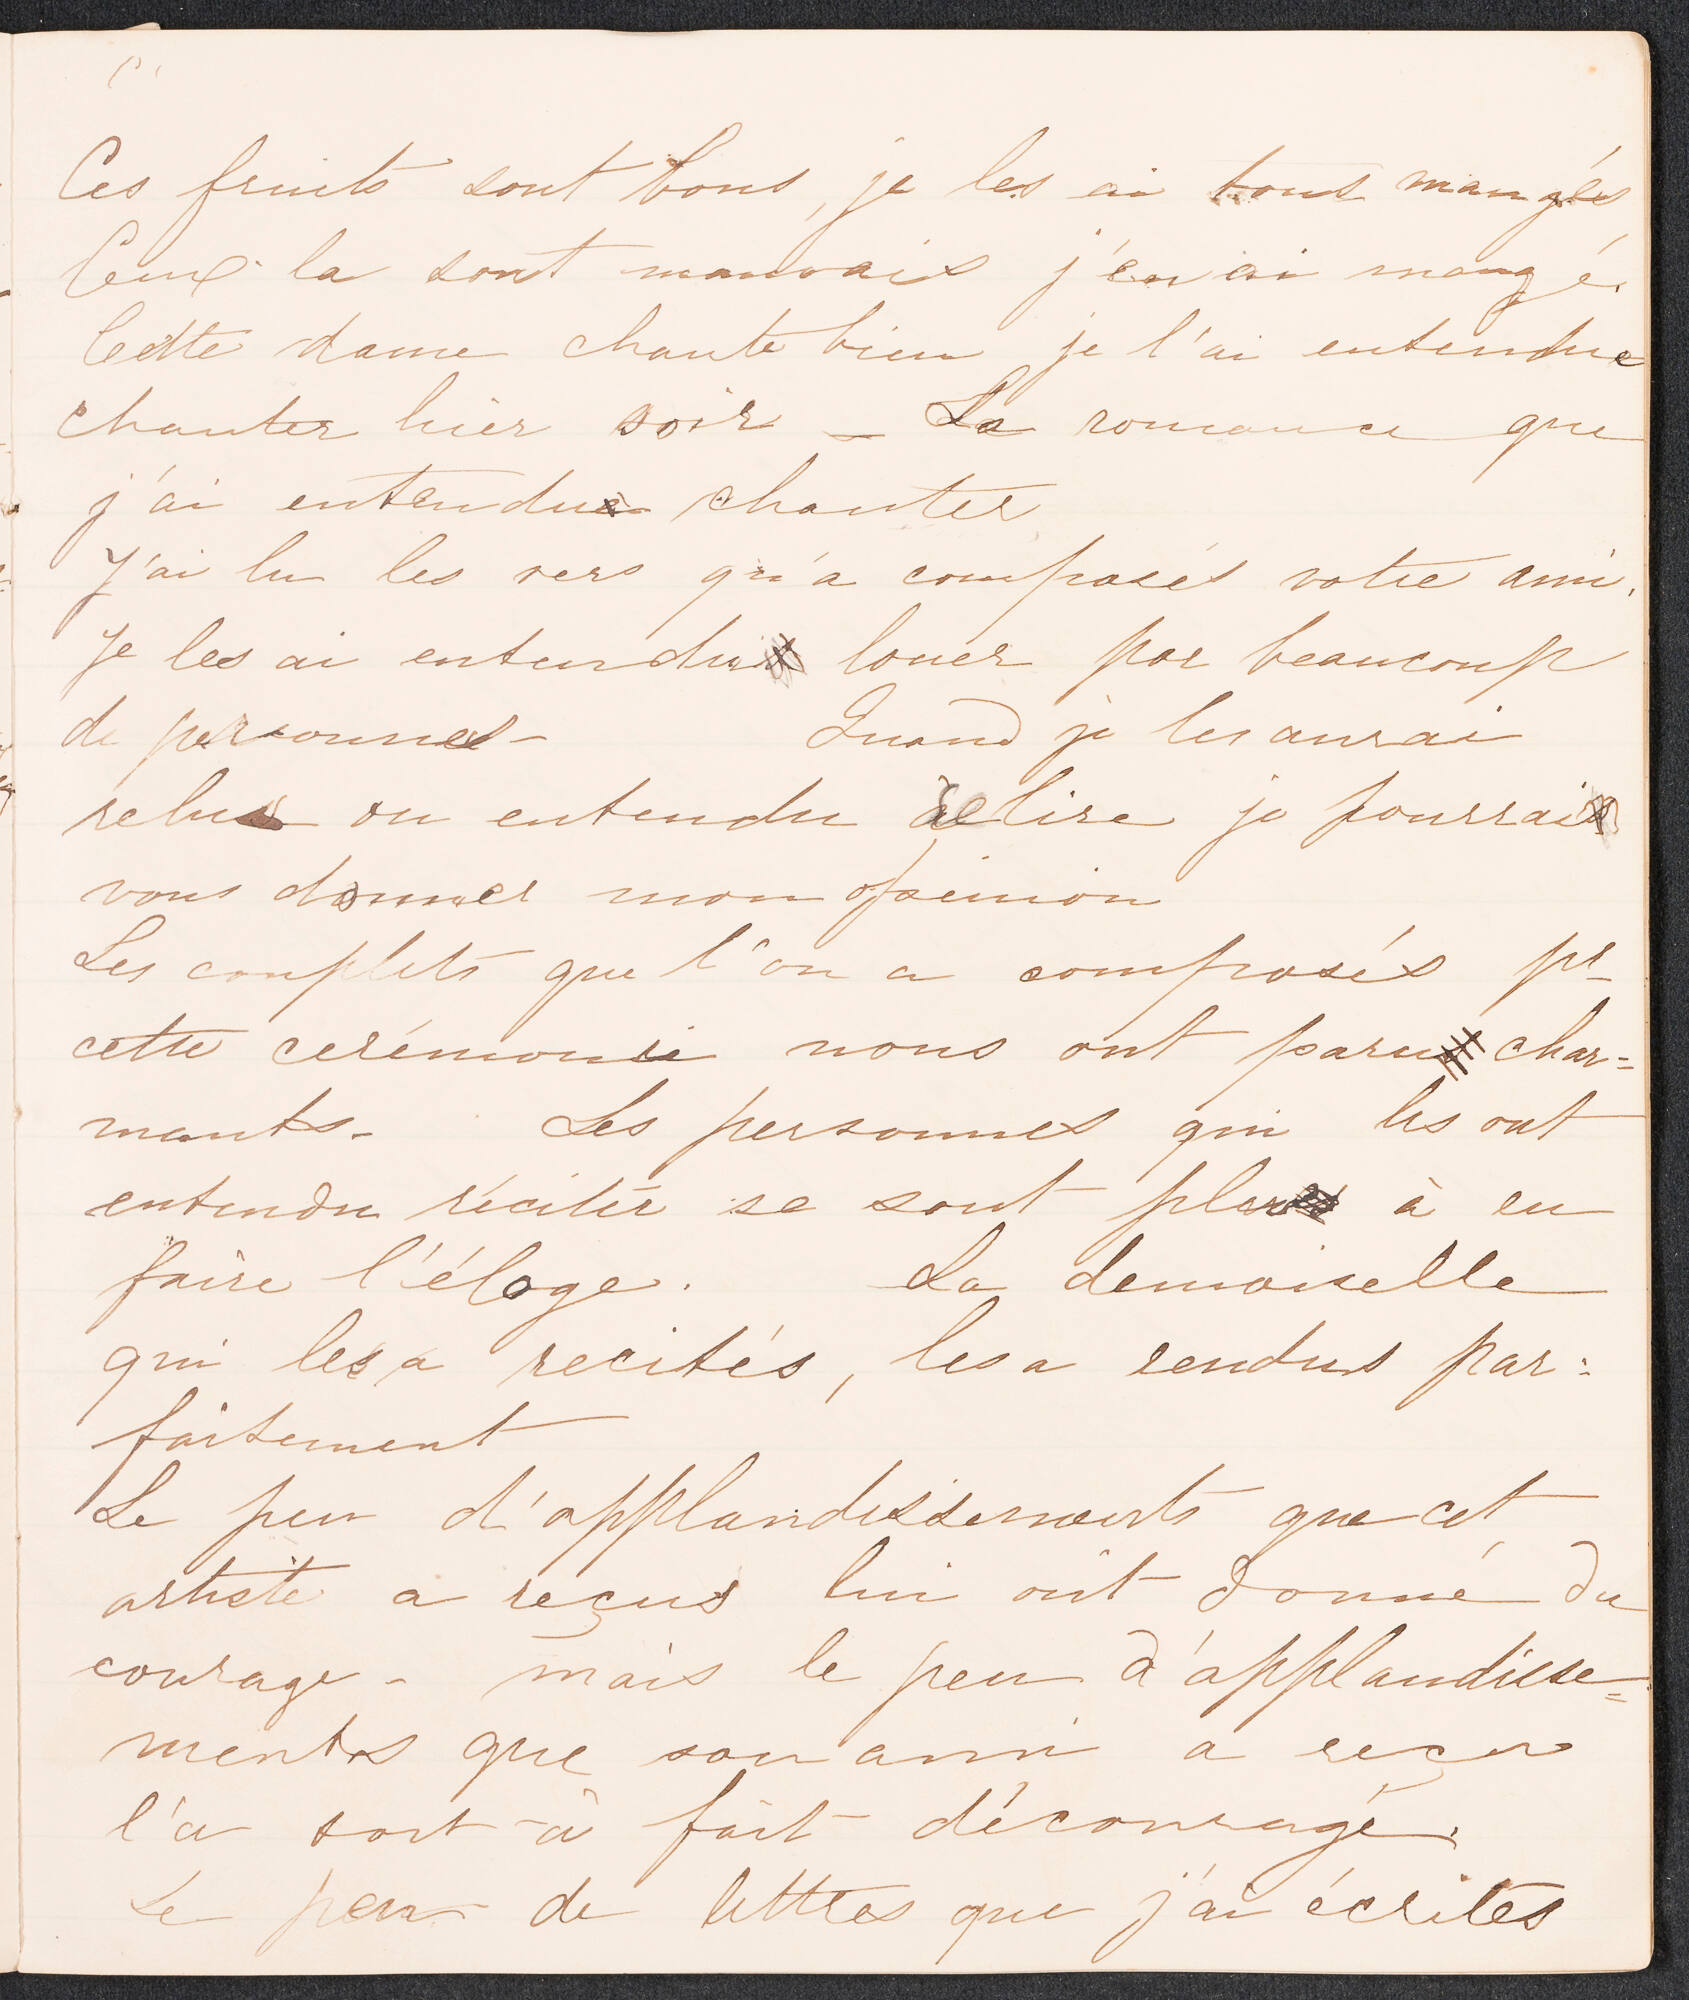 Ces fruits sont bons, je les ai tous mangés
Ceux la sont mauvais j'en ai mangé.
Cette dame chante bien je l'ai entendue
chanter hier soir _ La romance que
j'ai entendue chanter
J'ai lu les vers qu'a composés votre ami.
Je les ai entendu louer par beaucoup
de personnes - Quand je les aurai
relus ou entendu lire je pourrai
vous donner mon opinion
Les couplets que l'on a composés pr
cette cerémonie nous ont paru char=
mants. Les personnes qui les ont
entendu réciter se sont plu à en
faire l'éloge. La demoiselle
qui les a recités, les a rendus par=
faitement
Le peu d'applaudissements que cet
artiste a reçus lui ont donné du
courage - mais le peu d'applaudisse=
ments que son ami a reçu
l'a tout-à fait découragé.
Le peu de lettres que j'ai écrites